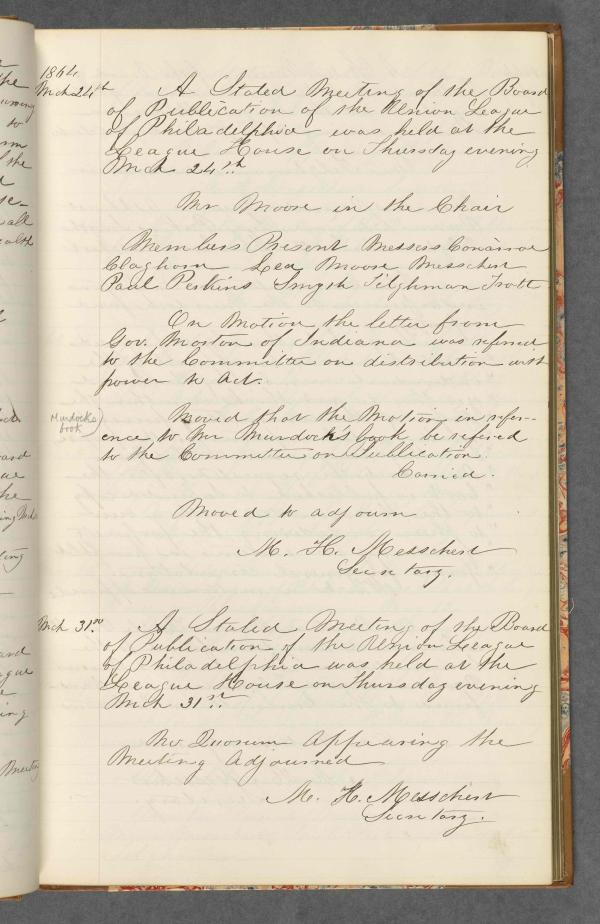 1864
Mch 24th A Stated Meeting of the Board
of Publication of the Union League
of Philadelphia was held at the
League House on Thursday evening
Mch 24th.
Mr Moore in the Chair
Members Present Messers Conarroe
Claghorn Lea Moore Messchert
Paul Perkins Smyth Tilghman Trott
On Motion the letter from
Gov. Morton of Indiana was referred
to the Committee on distribution with
power to Act.
Murdock's
book
Moved that the Motion in refer-
ence to Mr Murdock's book be refered
to the Committee on Publication.
Carried.
Moved to adjourn
M. H. Messchert
Secretary.
Mch 31st. A Stated Meeting of the Board
of Publication of the Union League
of Philadelphia was held at the
League House on Thursday evening
Mch 31st.
No Quorum Appearing the
Meeting Adjourned
M. H. Messchert
Secretary.